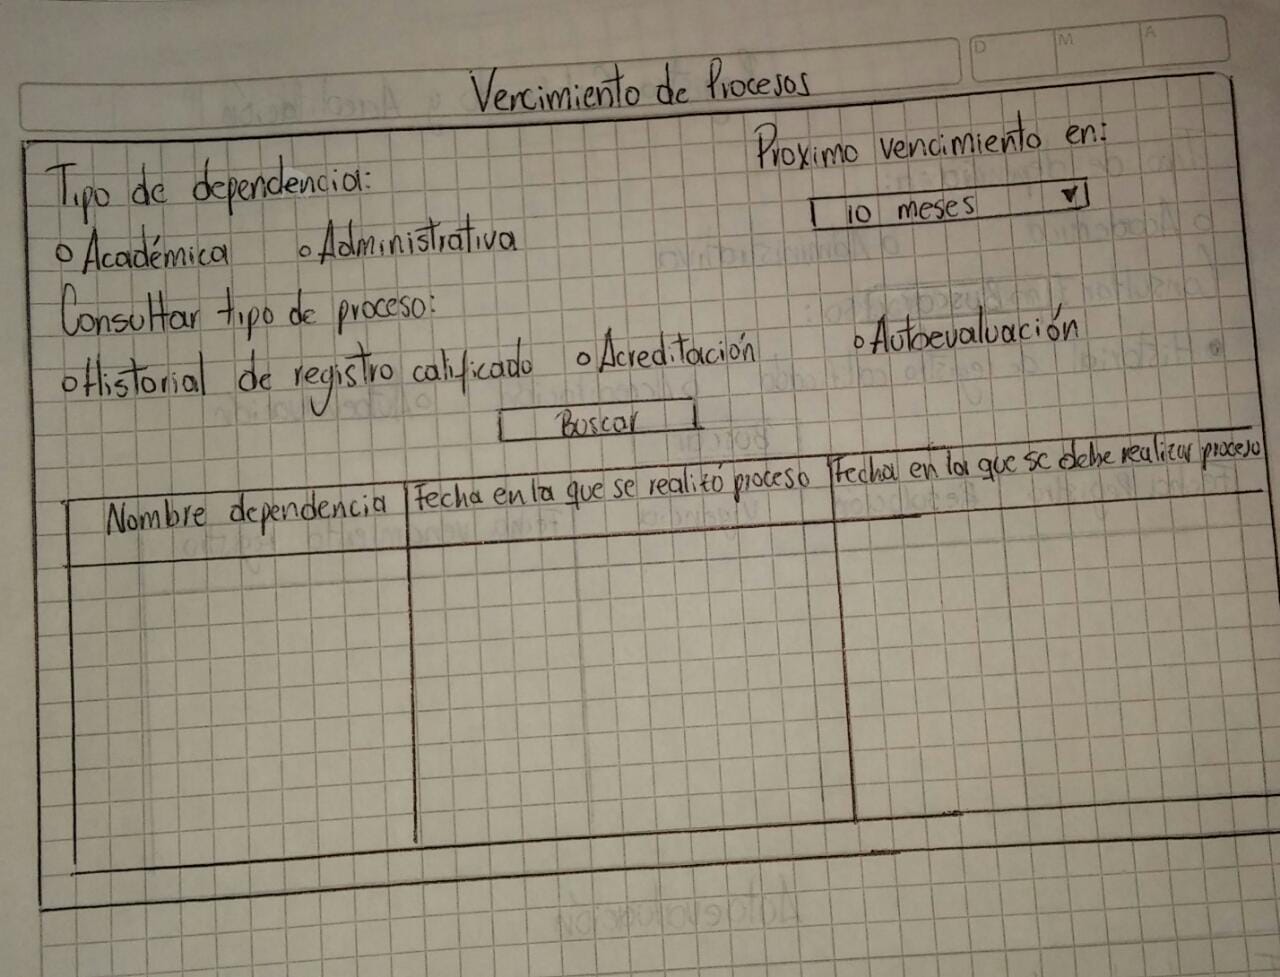 D M A
Vencimiento de Procesos
Proximo vencimiento en:
Tipo de dependencia:
10 meses
o Académica o Administrativa
Consultar tipo de proceso:
o Historial de registro calificado o Acreditación o Autoevaluación
Buscar
Nombre dependencia Fecha en la que se realizó proceso Fecha en la que se debe realizar proceso
Autoevaluación